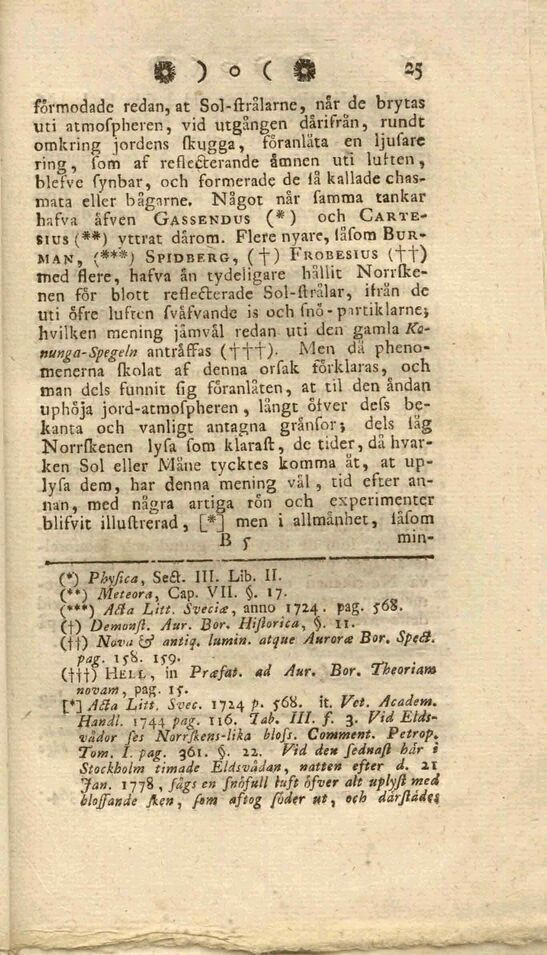 ❁ ) o ( ❁ 25
förmodade redan, at Sol-ſtrålarne, når de brytas
uti atmoſpheren, vid utgången dårifrån, rundt
omkring jordens ſkugga, föranlåta en ljuſare
ring, ſom af reflecterande åmnen uti luften,
blefve ſynbar, och formerade de ſå kallade chas-
mata eller bågarne. Något når ſamma tankar
hafva åfven GASSENDUS (*) och CARTE-
SIUS (**) yttrat dårom. Flere nyare, ſåſom BUR-
MAN, (***) SPIDBERG, (†) FROBESIUS (††)
med flere, hafva ån tydeligare hållit Norrſke-
nen för blott reflecterade Sol-ſtrålar, ifrån de
uti öfre luften ſvåfvande is och ſnö-partiklarne;
hvilken mening jåmvål redan uti den gamla Ko-
nunga-Spegeln antråffas (†††). Men då pheno-
menerna ſkolat af denna orſak förklaras, och
man dels funnit ſig föranlåten, at til den åndan
uphöja jord-atmoſpheren, långt öfver deſs be-
kanta och vanligt antagna grånſor; dels ſåg
Norrſkenen lyſa ſom klaraſt, de tider, då hvar-
ken Sol eller Måne tycktes komma åt, at up-
lyſa dem, har denna mening vål, tid efter an-
nan, med några artiga rön och experimenter
blifvit illuſtrerad, [*] men i allmånhet, ſåſom
B 5 min-
(*) Phyſica, Sect. III. Lib. II.
(**) Meteora, Cap. VII. §. 17.
(***) Acta Litt. Sveciæ, anno 1724. pag. 568.
(†) Demonſt. Aur. Bor. Hiſtorica, §. 11.
(††) Nova & antiq. lumin. atque Auroræ Bor. Spect.
pag. 158. 159.
(†††) HELL, in Præfat. ad Aur. Bor. Theoriam
novam, pag. 15.
[*] Acta Litt. Svec. 1724 p. 568. it. Vet. Academ.
Handl. 1744 pag. 116. Tab. III. f. 3. Vid Elds-
vådor ſes Norrſkens-lika bloſs. Comment. Petrop.
Tom. I. pag. 361. §. 22. Vid den ſednaſt hår i
Stockholm timade Eldsvådan, natten efter d. 21
Jan. 1778, ſågs en ſnöfull luft öfver alt uplyſt med
bloſſande ſken, ſom aftog ſöder ut, och dårſtådes